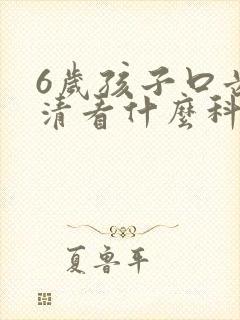 6歲孩子口
清看什麼科
夏鲁平